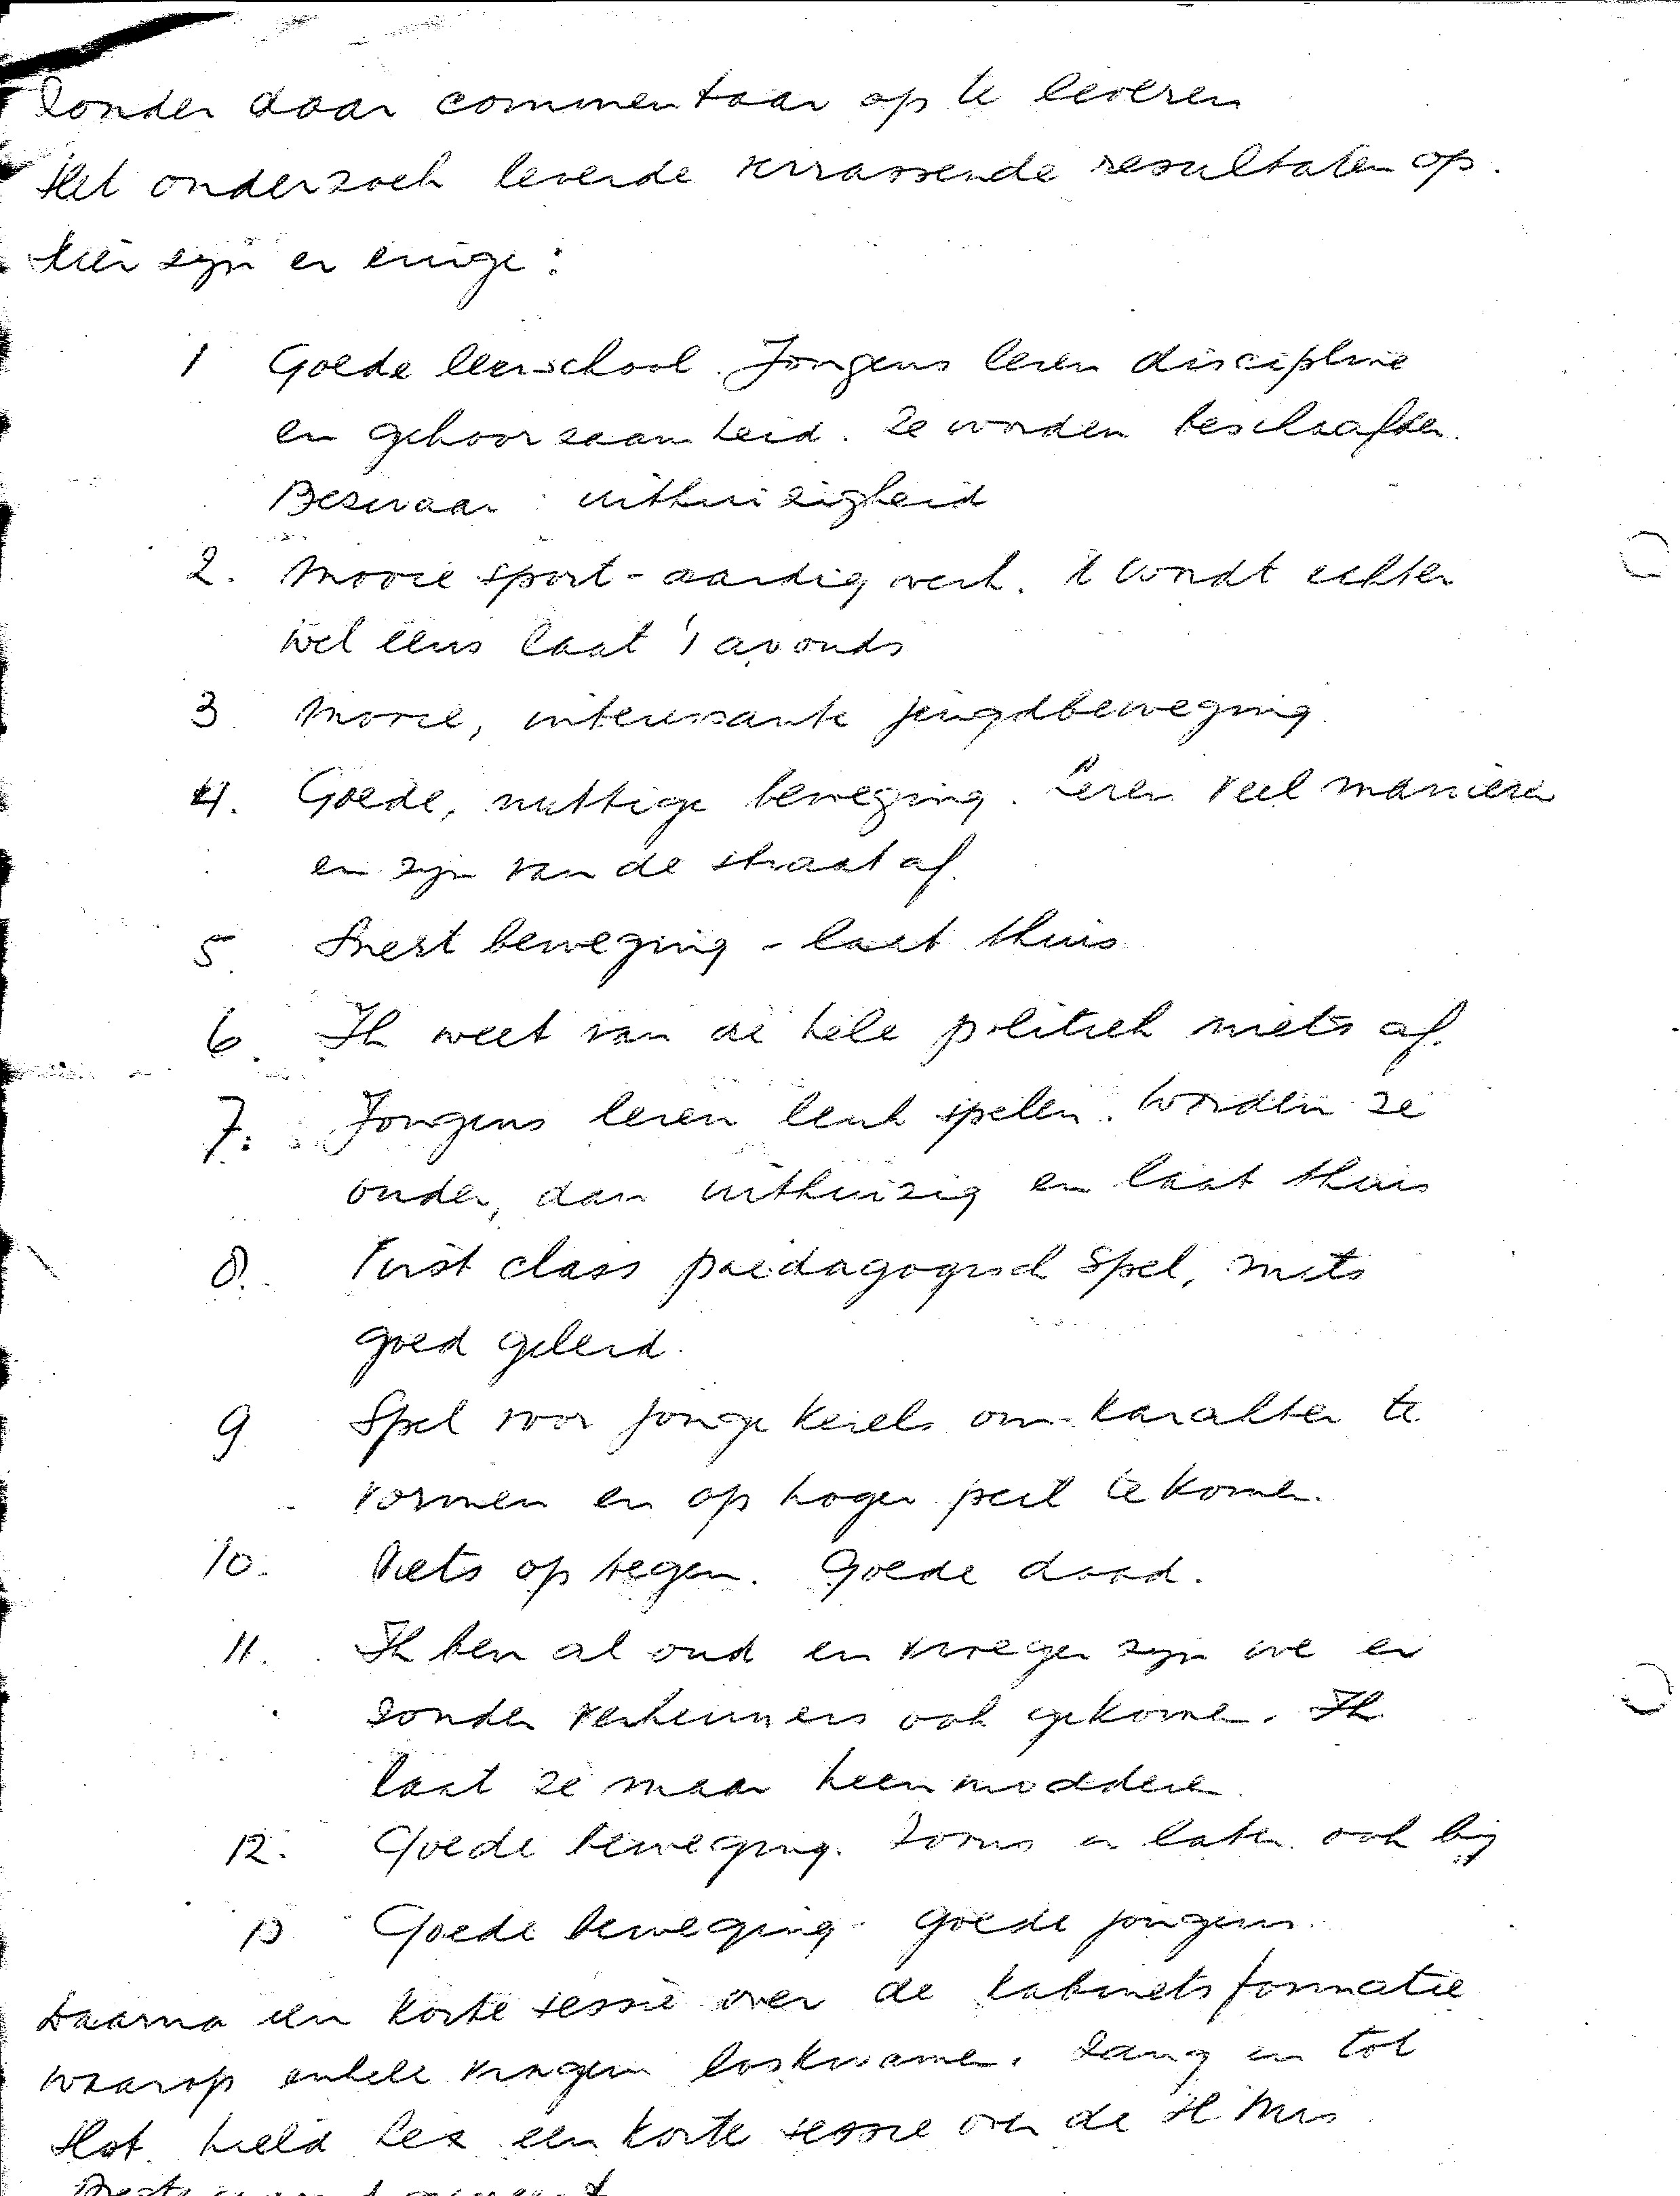 zonder daar commentaar op te leveren
Het onderzoek leverde verrassende resultaten op.
Hier zijn er enige:
1 Goede leerschool. Jongens leren discipline
en gehoorzaamheid. Ze worden beschaafder.
Bezwaar: uithuizigheid
2. Mooie sport - aardig werk. 't Wordt echter
wel eens laat 's avonds
3 Mooie, interessante jeugdbeweging
4. Goede, nuttige beweging. Leren veel manieren
en zijn van de straat af.
5. beweging - laat thuis
6. Ik weet van de hele politiek niets af.
7. Jongens leren leuk spelen. Worden ze
ouder, dan uithuizig en laat thuis
8. First class paedagogisch spel, mits
goed geleid.
9 Spel voor jonge kerels om karakter te
vormen en op hoger peil te komen.
10. Niets op tegen. Goede daad.
11. Ik ben al oud en vroeger zijn we er
zonder verkenners ook gekomen. Ik
laat ze maar heen modderen.
12. Goede beweging. Zoons er later ook bij
13 Goede beweging. Goede jongens.
Daarna een korte sessie over de kabinetsformatie
waarop enkele vragen loskwamen. Lang en tot
slot hield een korte sessie over de H. Mis